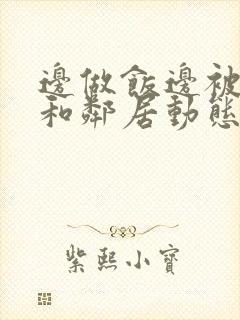 邊做飯邊被
和鄰居動態
紫熙小寶